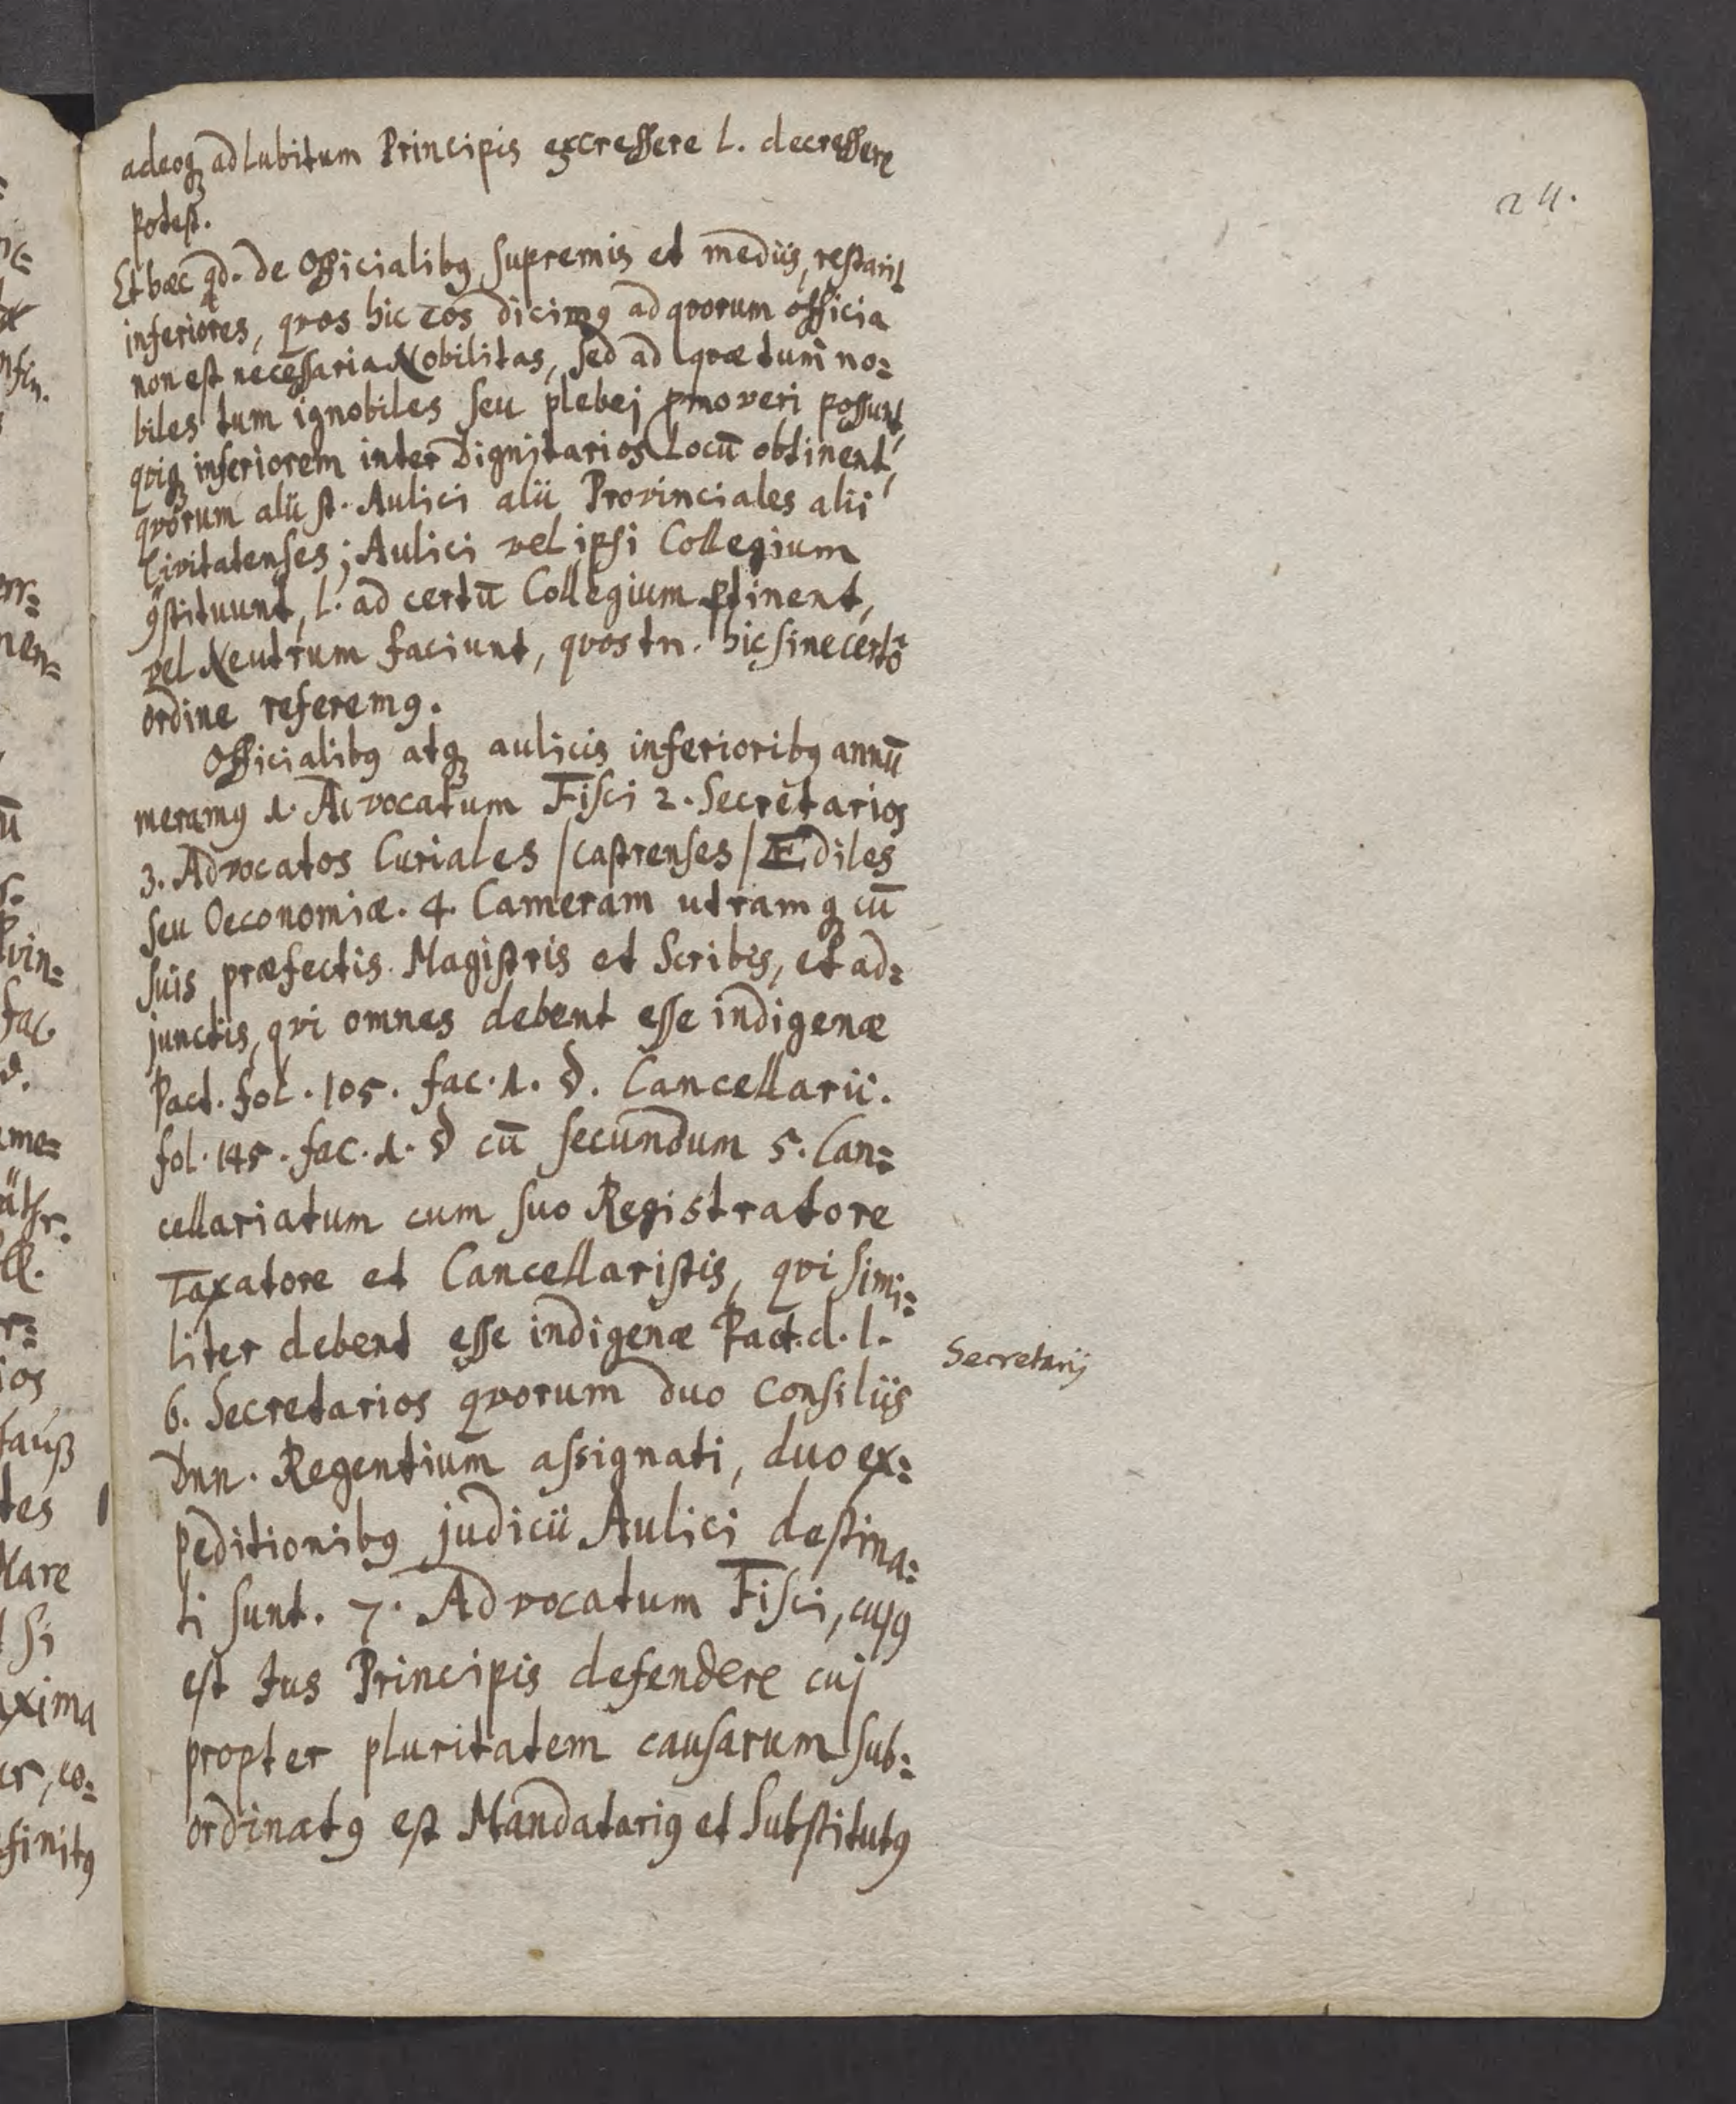 24.
adeoq; ad Lubitum Principis excressere L. decressere
potest.
Et hæc qd. de Officialibꝯ Supremis et mediis, restant
inferiores, qvos hic eos dicimꝯ ad qvorum officia
non est necessaria Nobilitas, sed ad qvæ tum no=
biles tum ignobiles seu plebej pmoveri possunt,
qviq; inferiorem inter Dignitarios Locū obtinent,
qvorum alii st. Aulici alii Provinciales alii
Civitatenses; Aulici vel ipsi Collegium
ꝯstituunt, l. ad certū Collegium ꝑtinent,
vel Neutrum faciunt, qvos tn. hic sine certo
ordine referemꝯ.
Officialibꝯ atq; aulicis inferioribꝯ annū
meramꝯ 1. Advocatum Fisci 2. Secretarios
3. Advocatos Curiales /castrenses/ Ædiles
seu Oeconomiæ. 4. Cameram utramq; cū
suis præfectis. Magistris et Scribis, et ad=
junctis, qvi omnes debent esse indigenæ
Pact. fol. 105. fac. 1. §. Cancellarii.
fol. 145. fac. 1. § cū secundum 5. Can=
cellariatum cum suo Registratore
Taxatore et Cancellaristis, qvi simi=
liter debent esse indigenæ Pact. d. l.
Secretarij
6. Secretarios qvorum duo Consiliis
Dnn. Regentium assignati, duo ex=
peditionibꝯ judicii Aulici destina=
ti sunt. 7. Advocatum Fisci, cujꝯ
est Jus Principis defendere cuj
propter pluritatem causarum sub=
ordinatꝯ est Mandatariꝯ et Substitutꝯ